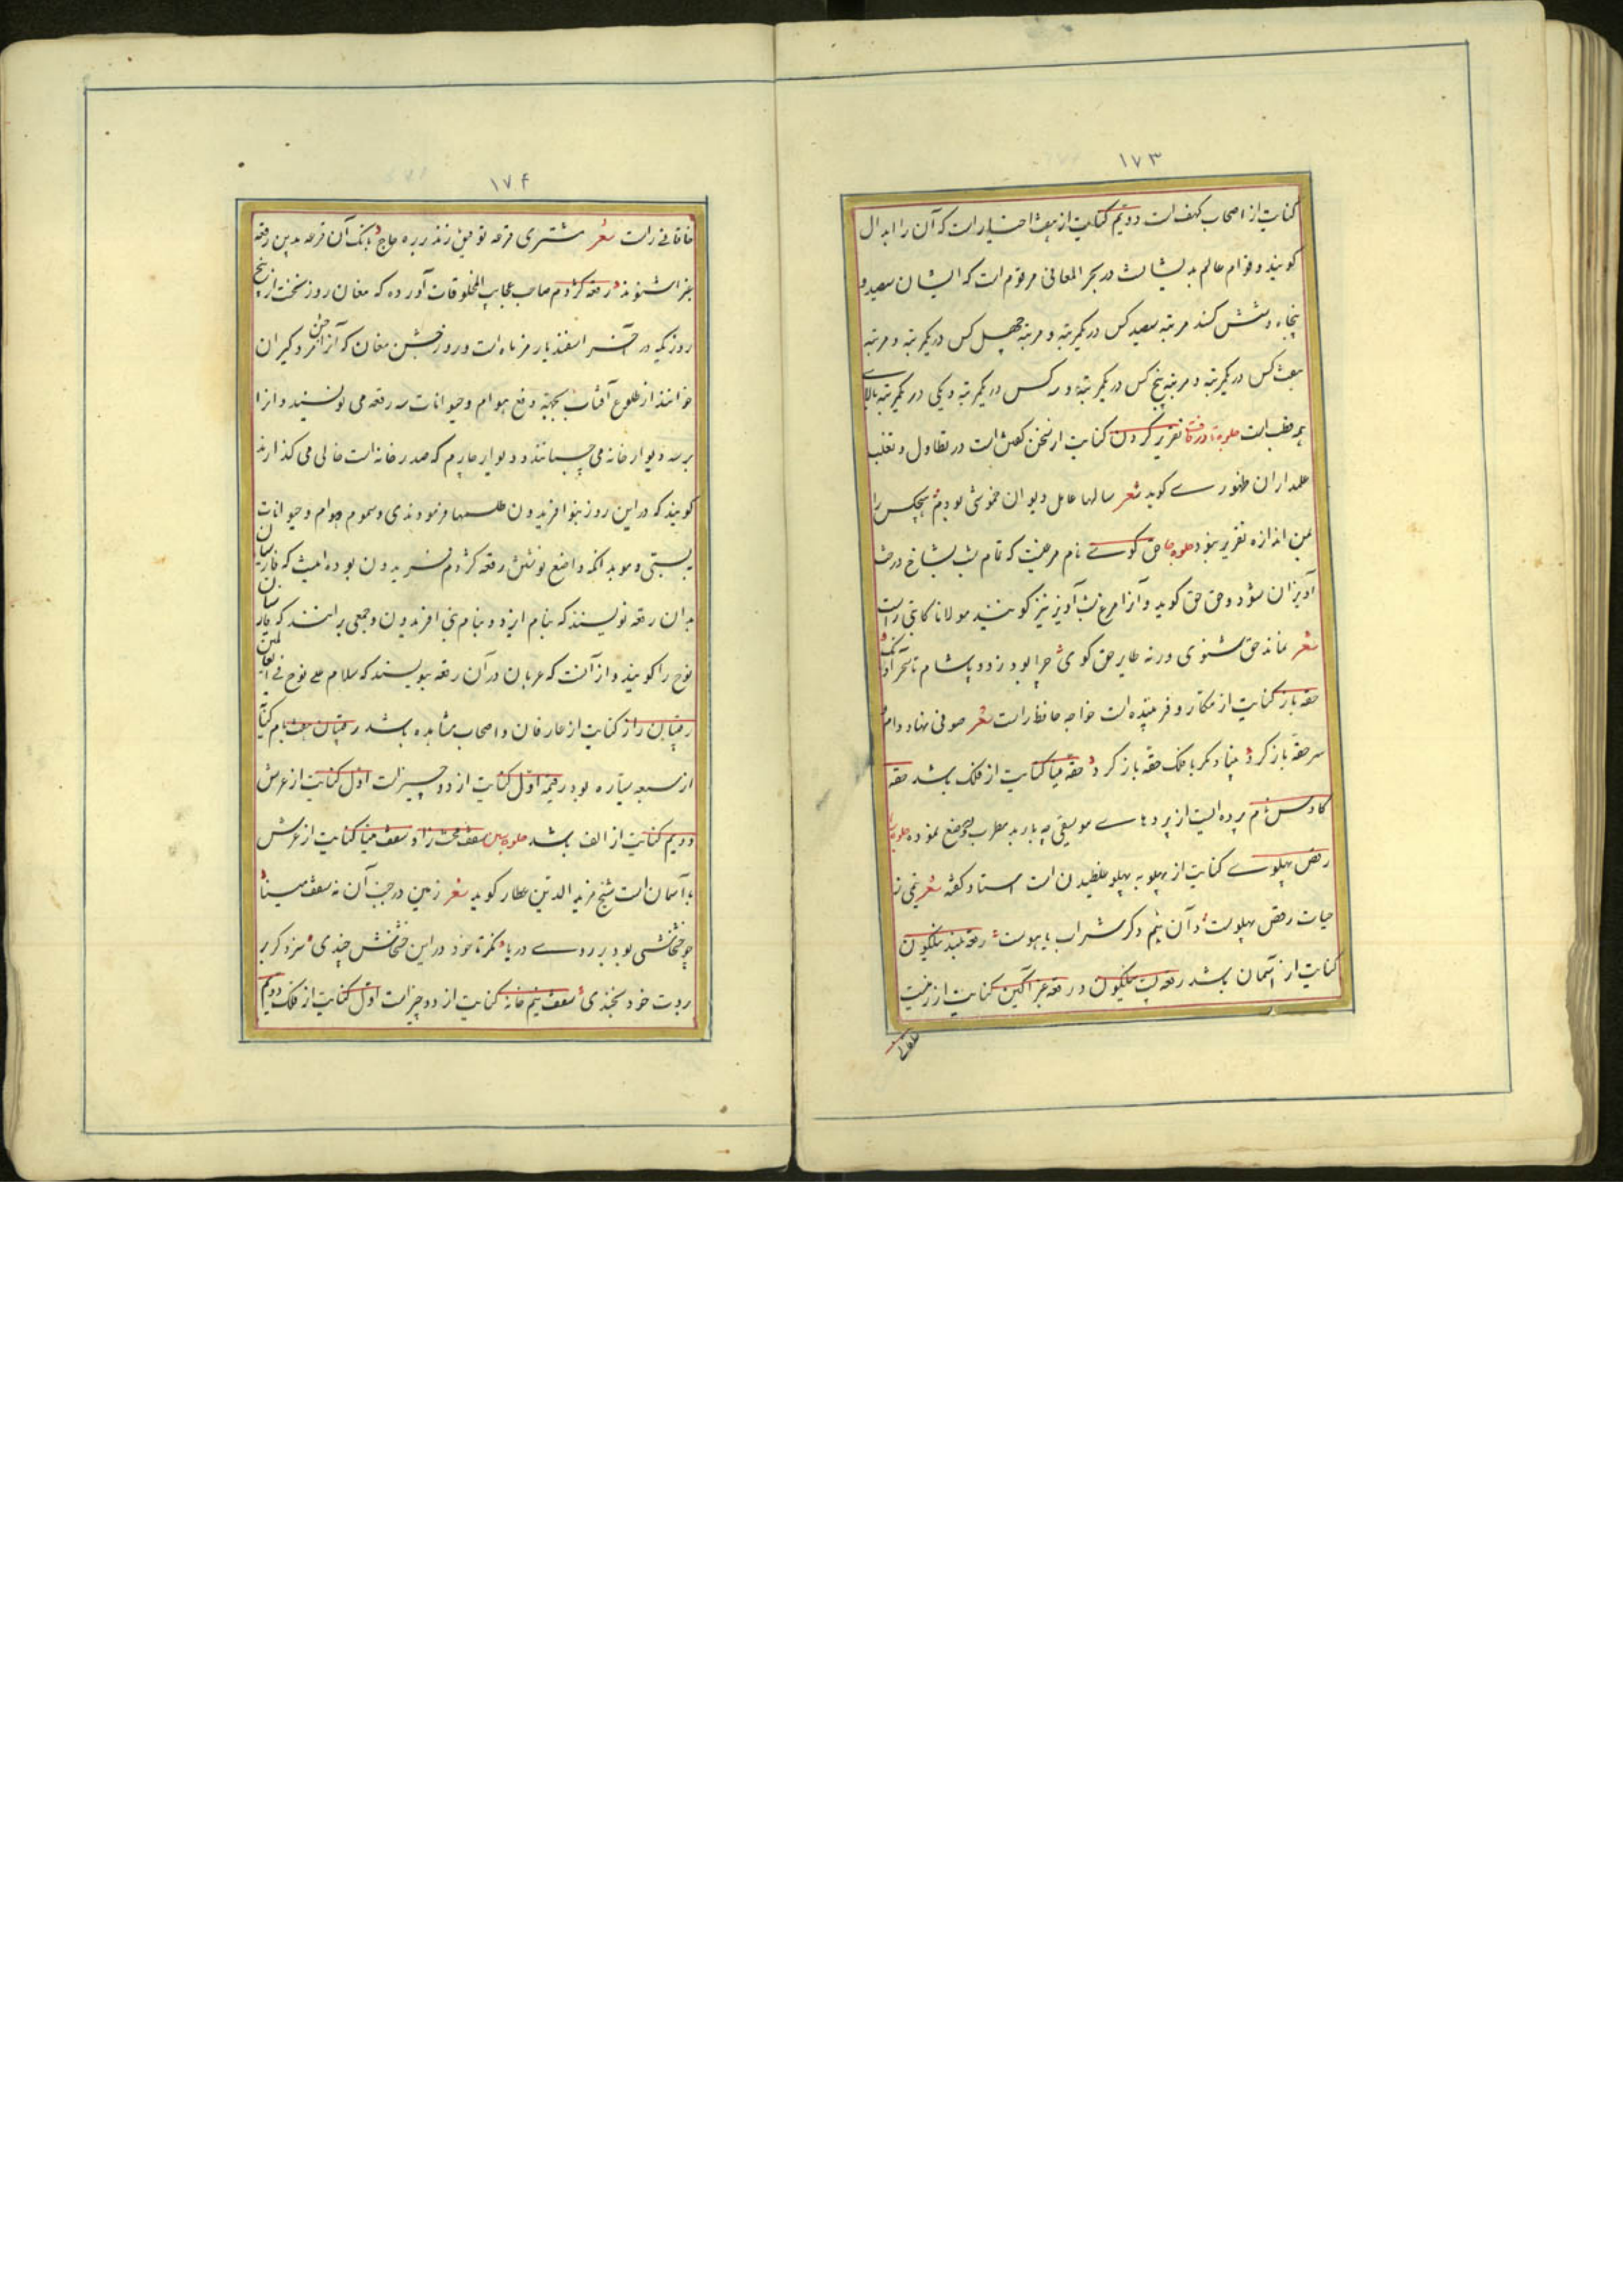 ۱۷۳
کنایت از اصحاب کهف است دویم کنایت از هفت اخیار است که آن را ابدال
کویند و قوام عالم بدیشانست در بحر المعانی مرقوم است که ایشان سیصد و
پنجاه و شش کسند مرتبه سیصد کس در یکمرتبه و مرتبه چهل کس در یکمرتبه و مرتبه
هفت کس در یکمرتبه و مرتبه پنج کس در یکمرتبه و سه کس در یکمرتبه و یکی در یکمرتبه بالای
همه قطب است جلوه در قاف تقریر کردن کنایت از سخن کفتن است در تطاول و تغلب
عملداران ظهوری کوید شعر سالها عامل دیوان خموشی بودم هیچکس را
بمن اندازه تقریر نبود جلوه حا حق کوی نام مرغیست که تمام شب بشاخ درخت
آویزان شود و حق حق کوید و آنرا مرغ شب آویز نیز کویند مولانا کاتبی راست
شعر نماند حق شنوی ورنه طایر حق کوی چرا بود زدو پا شام تا سحر آونک
حقه باز کنایت از مکار و فریبنده است خواجه حافظ راست شعر صوفی نهاد دام و
سر حقه باز کرد بنیاد مکر با فلک حقه باز کرد حقه مینا کنایت از فلک باشد حقه
کاوس نام پرده ایست از پردهای موسیقی که باربد مطرب وضع نموده
رقص پهلوی کنایت از پهلو به پهلو غلطیدن است استاد کفته شعر
حیات رقص پهلوست و آن نیم دکر شراب یا هوست رقعه بلند نیلکون
کنایت از آسمان باشد رقعه پست نیلکون و رقعه عنبر آکین کنایت از زمینست
۱۷۴
خاقانی راست شعر مشتری قرعه توفیق زند بر ره حاج بانک آن قرعه بدین رقعه
غبرا شنوند رقعه کژدم صاحب عجایب المخلوقات آورده که مغان روز نخست از پنج
روزیکه در آخر اسفندیارمز ماه است و روز جشن مغان که آنرا جشن مردکیران
خوانند از طلوع آفتاب بجهة دفع هوام و حیوانات سه رقعه می نویسند و آنرا
بر سه دیوار خانه می چسبانند و دیوار چارم که صدر خانه است خالی می کذارند
کویند که در این روز بنوا فریدون طلسمها فرمودندی و سموم هوام و حیوانات
ببستی و موید آنکه واضع نوشتن رقعه کژدم فریدون بوده اینست که فارسیان
بدان رقعه نویسند که بنام ایزد و بنام نبی افریدون و جمعی برانند که فارسیان
نوح را کویند و از آنست که عربان در آن رقعه بنویسند که سلام علی نوح فی العالمین
رقیبان راز کنایت از عارفان و اصحاب مشاهده باشد رقیبان هفت بام کنایت
از سبعه سیاره بود رقیمه اول کنایت از دو چیز است اول کنایت از عرش
دویم کنایت از الف باشد جلوه سین سقف محترزاد سقف مینا کنایت از عرش
یا آسمان است شیخ فرید الدین عطار کوید شعر زمین در جنب آن نه سقف مینا
چو خشخاشی بود بر روی دریا نکر تا خود در این خشخاش چندی سزد کر بر
بروت خود بخندی سقف نیم خانه کنایت از دو چیز است اول کنایت از فلک دویم